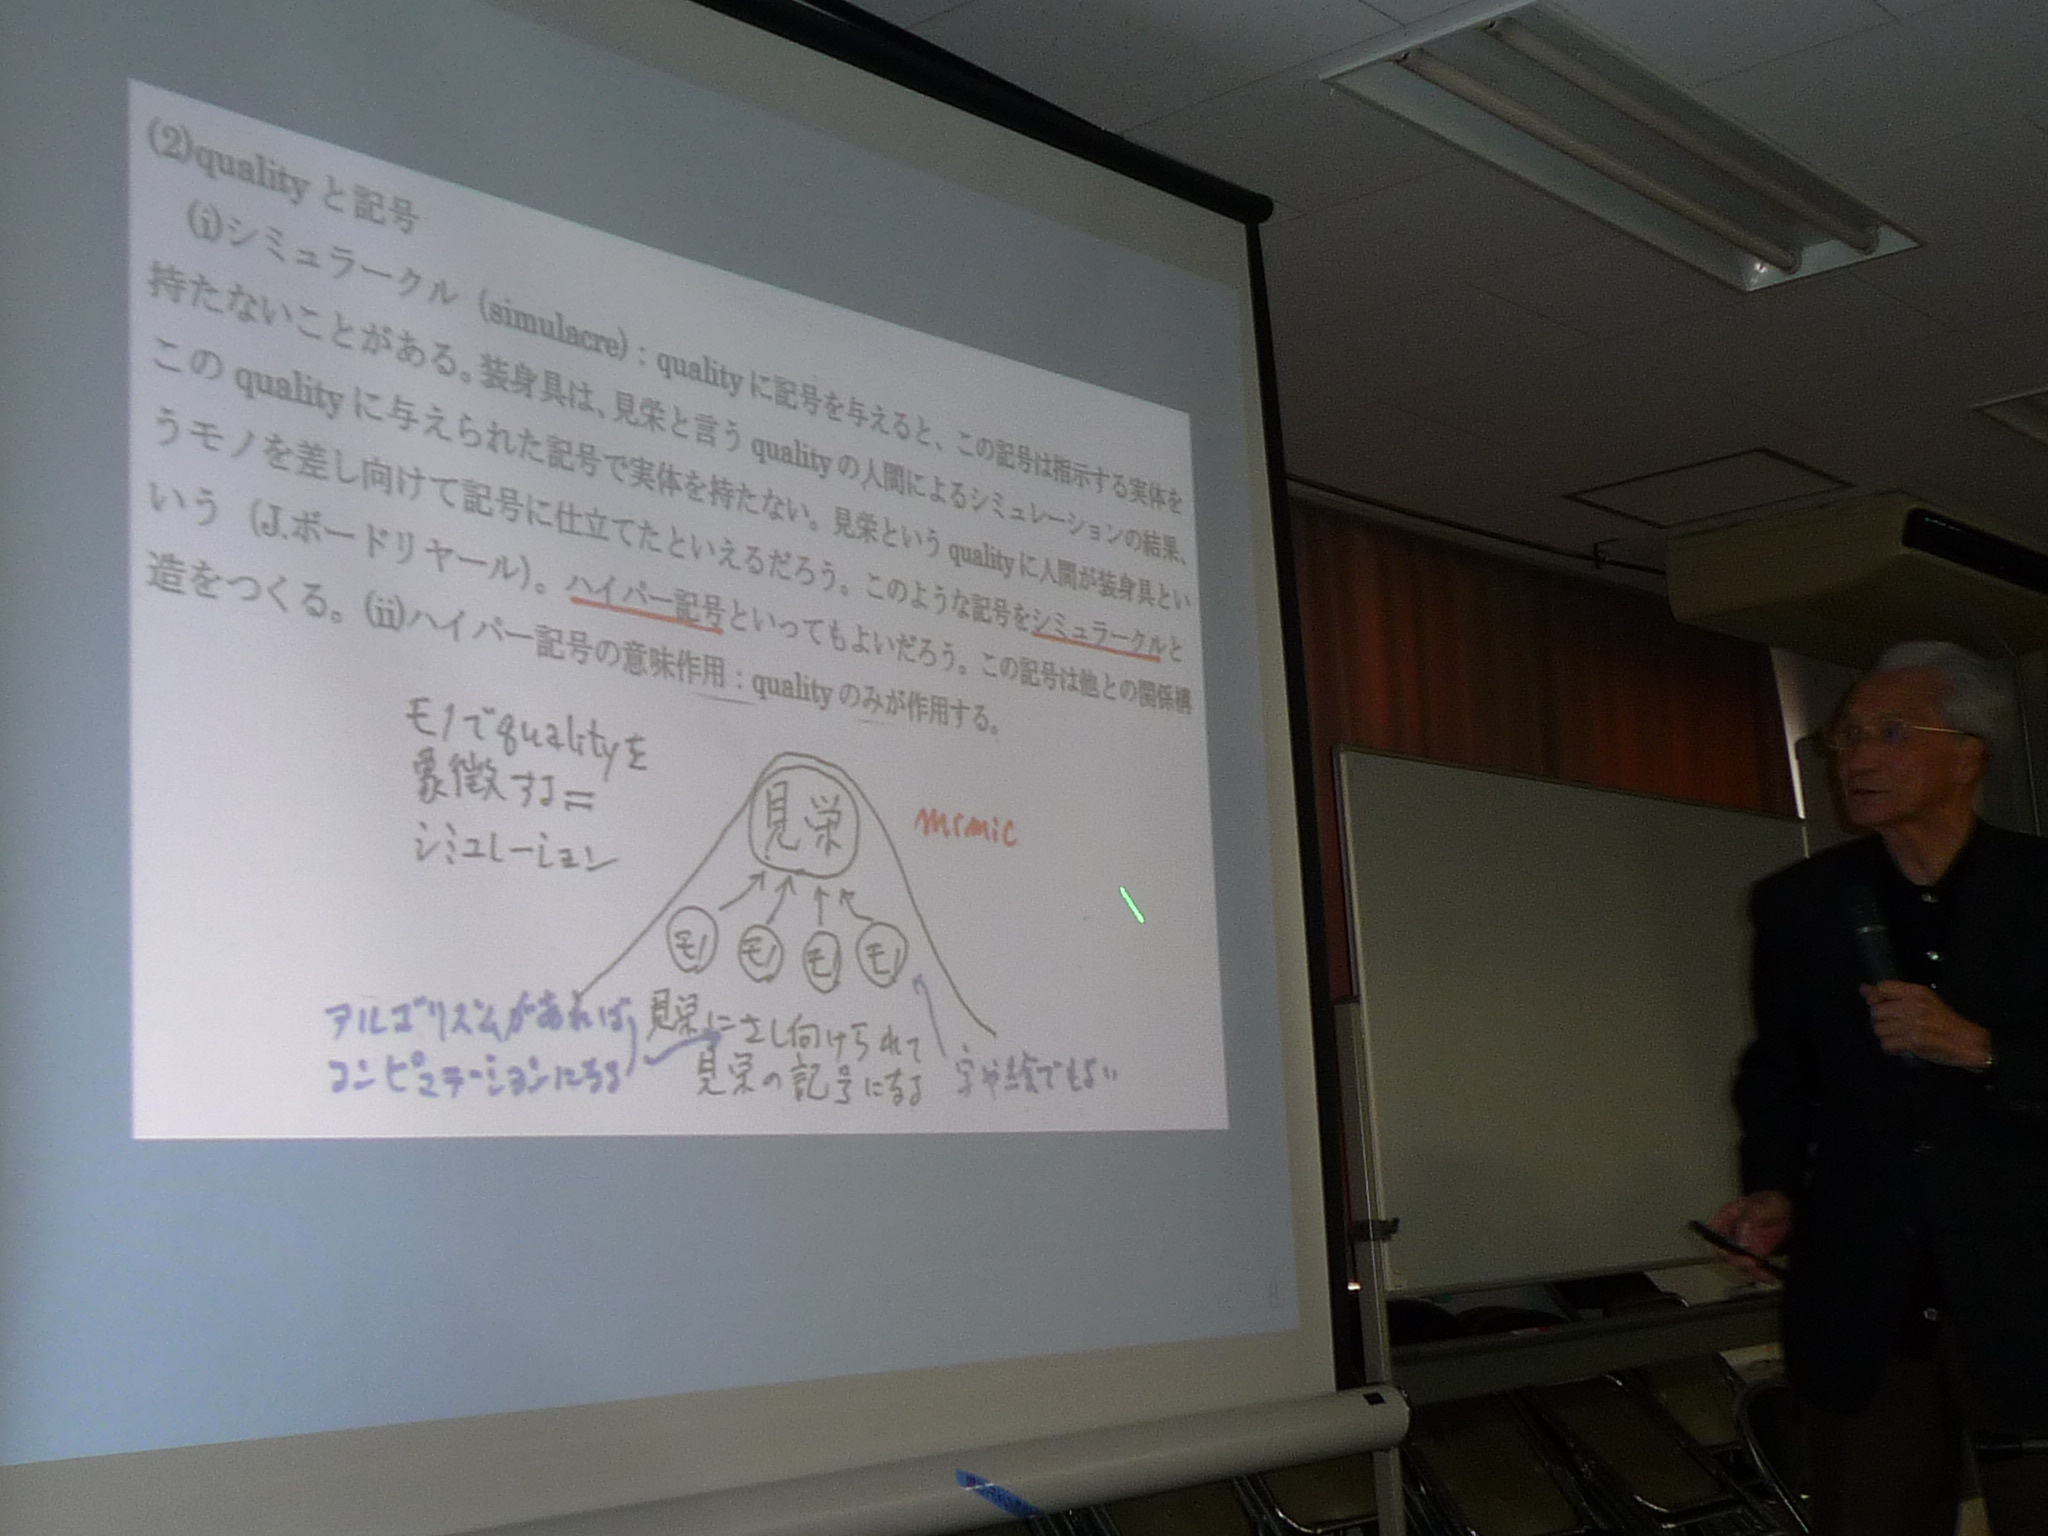 (2)qualityと記号
(i)シミュラークル (simulacre)：qualityに記号を与えると、この記号は指示する実体を
持たないことがある。装身具は、見栄と言うqualityの人間によるシミュレーションの結果、
このqualityに与えられた記号で実体を持たない。見栄というqualityに人間が装身具とい
うモノを差し向けて記号に仕立てたといえるだろう。このような記号をシミュラークルと
いう (J.ボードリヤール)。ハイパー記号といってもよいだろう。この記号は他との関係構
造をつくる。(ii)ハイパー記号の意味作用：qualityのみが作用する。
モノでqualityを
象徴する＝
シミュレーション
見栄
mimic
モノ モノ モノ モノ
アルゴリズムがあれば
コンピュテーションになる
見栄にさし向けられて
見栄の記号になる
字や絵でもよい